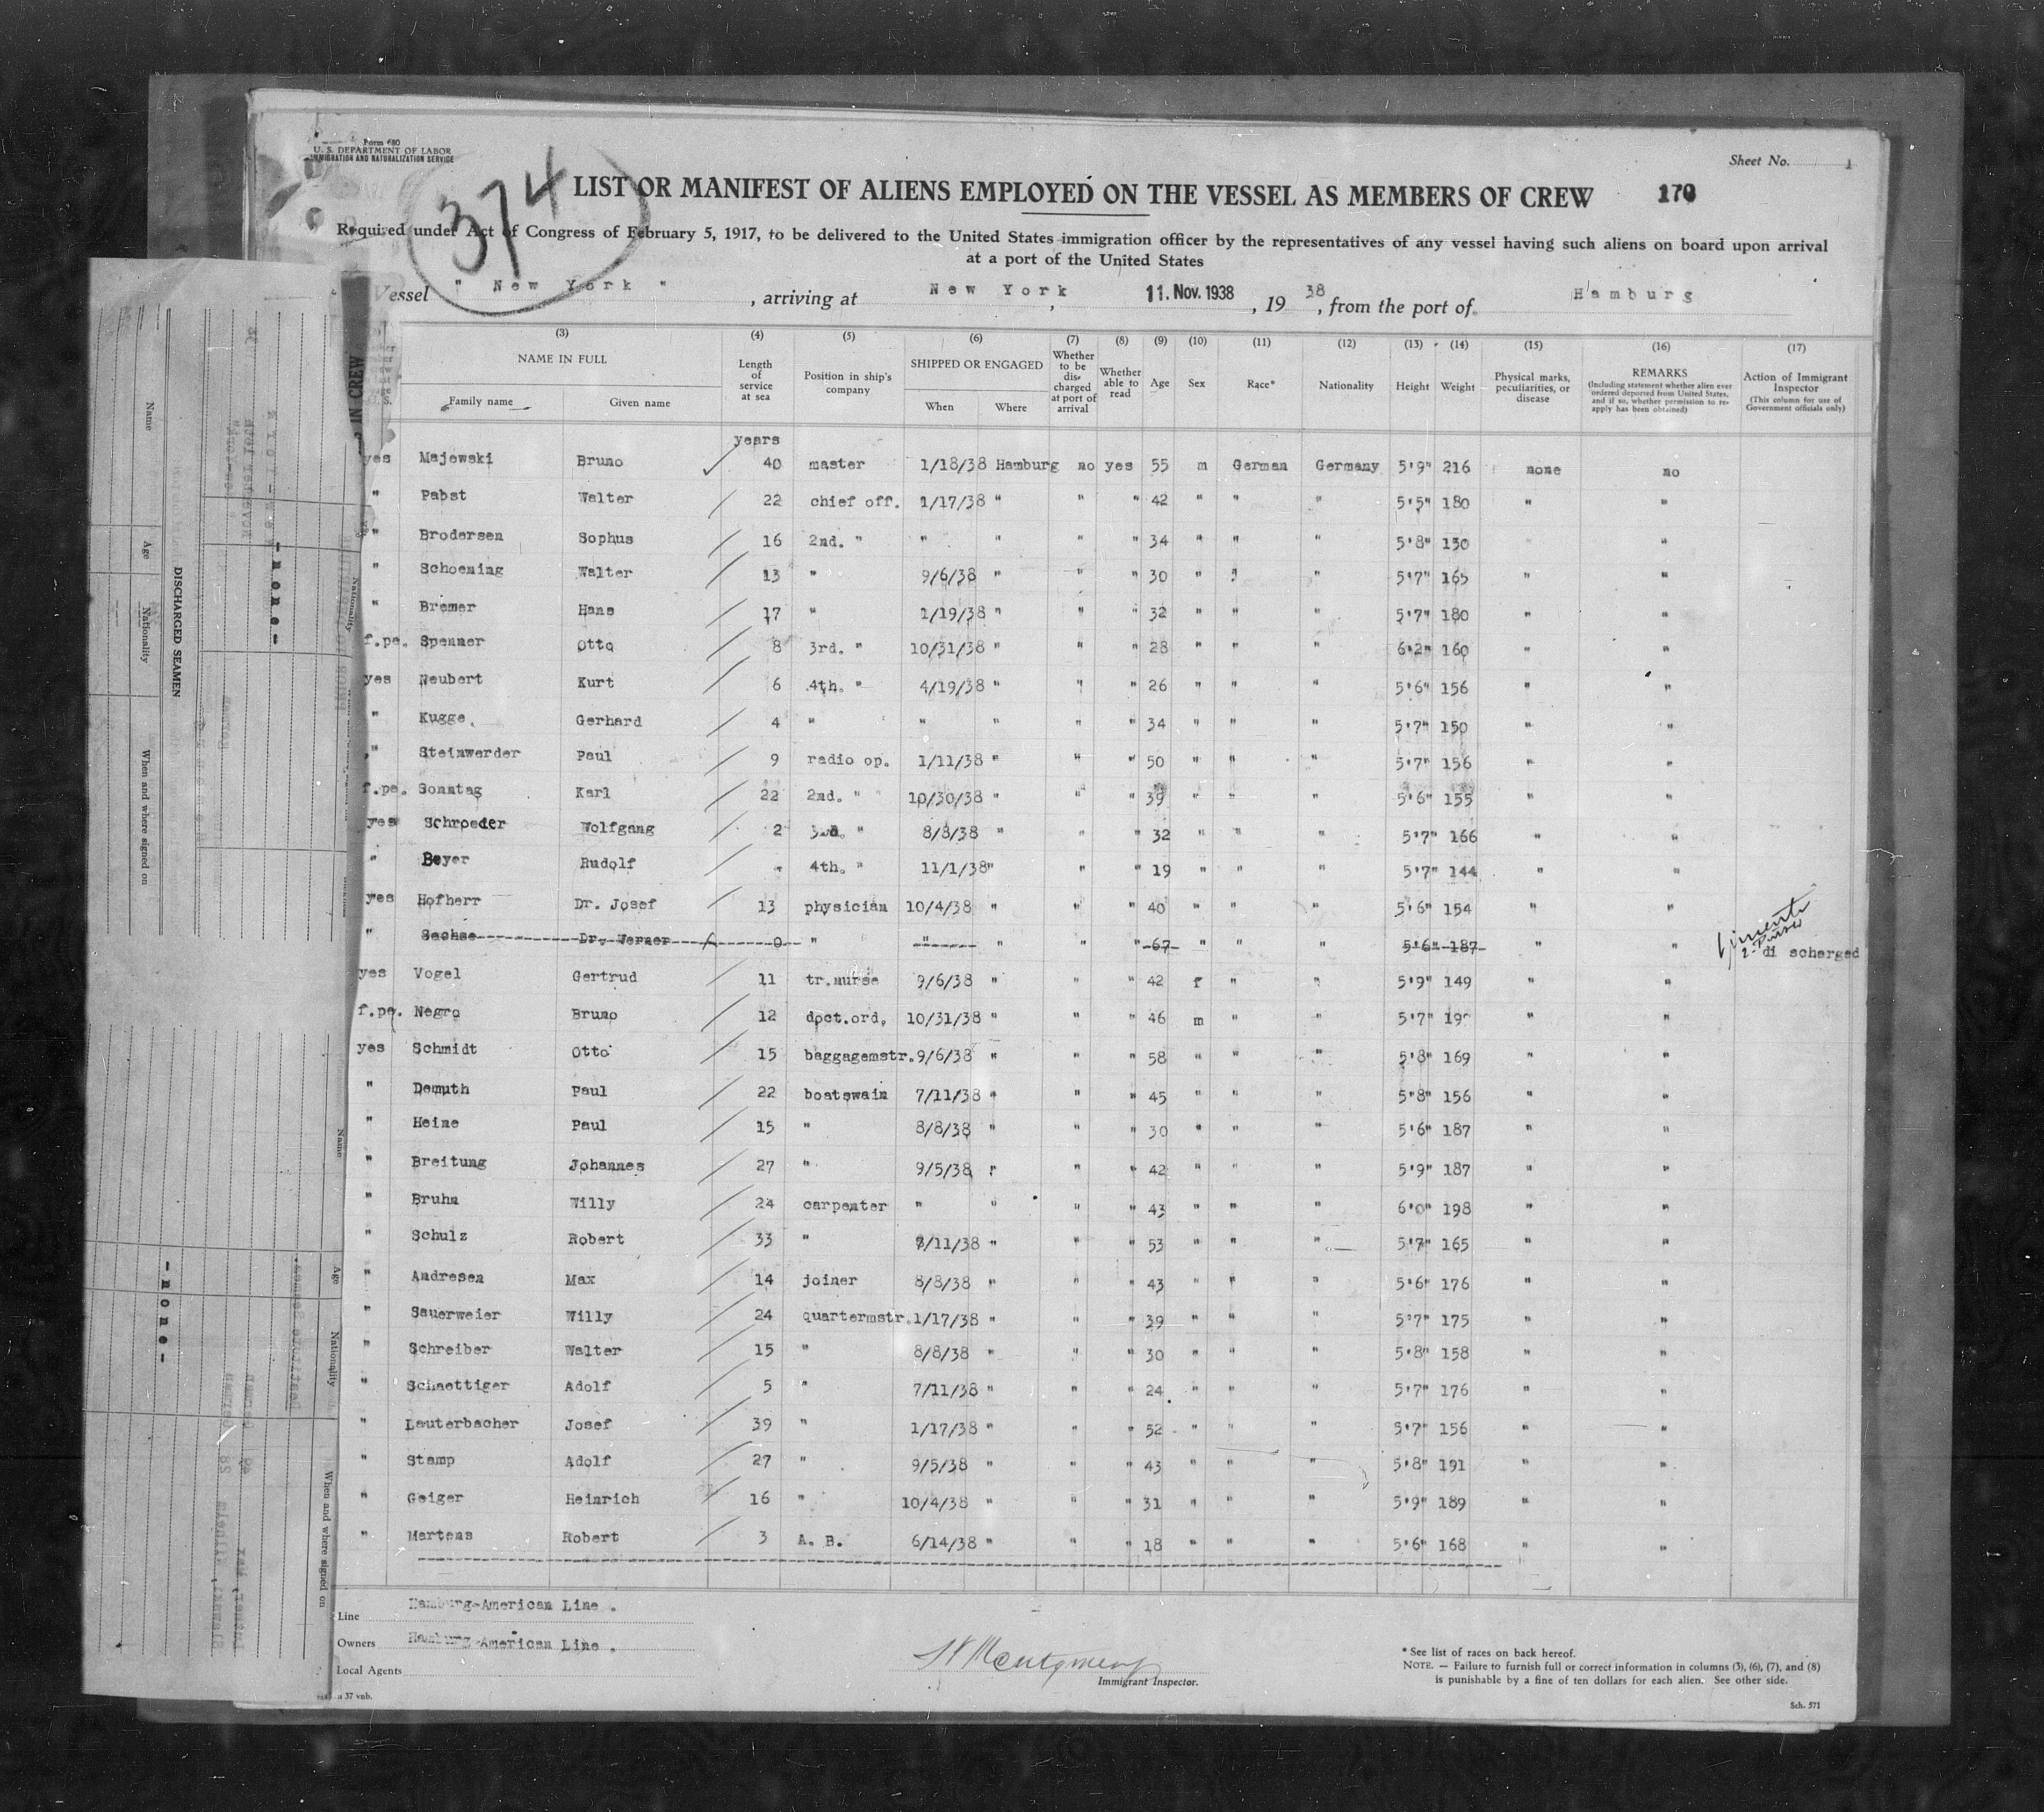 Form 680
U. S. DEPARTMENT OF LABOR
IMMIGRATION AND NATURALIZATION SERVICE
374
Sheet No. 1
LIST OR MANIFEST OF ALIENS EMPLOYED ON THE VESSEL AS MEMBERS OF CREW 170
Required under Act of Congress of February 5, 1917, to be delivered to the United States immigration officer by the representatives of any vessel having such aliens on board upon arrival
at a port of the United States
Vessel " New York " , arriving at New York , 11. Nov. 1938 , 19 38 , from the port of Hamburg
(3) (4) (5) (6) (7) (8) (9) (10) (11) (12) (13) (14) (15) (16) (17)
NAME IN FULL Family name Given name
Length of service at sea
Position in ship's company
SHIPPED OR ENGAGED When Where
Whether to be discharged at port of arrival
Whether able to read
Age Sex Race* Nationality Height Weight
Physical marks, peculiarities, or disease
REMARKS (Including statement whether alien ever ordered deported from United States, and if so, whether permission to re-apply has been obtained)
Action of Immigrant Inspector (This column for use of Government officials only)
years
yes Majewski Bruno 40 master 1/18/38 Hamburg no yes 55 m German Germany 5'9" 216 none no
" Pabst Walter 22 chief off. 1/17/38 " " " 42 " " " 5'5" 180 " "
" Brodersen Sophus 16 2nd. " " " " " 34 " " " 5'8" 130 "
" Schoening Walter 13 " 9/6/38 " " " 30 " " " 5'7" 165 " "
" Bremer Hans 17 " 1/19/38 " " " 32 " " " 5'7" 180 " "
f.pe. Spenner Otto 8 3rd. " 10/31/38 " " " 28 " " " 6'2" 160 " "
yes Neubert Kurt 6 4th. " 4/19/38 " " " 26 " " " 5'6" 156 " "
" Kugge Gerhard 4 " " " " " 34 " " " 5'7" 150 " "
" Steinwerder Paul 9 radio op. 1/11/38 " " " 50 " " " 5'7" 156 " "
f.pe. Sonntag Karl 22 2nd. " " 10/30/38 " " " 39 " " " 5'6" 155 " "
yes Schroeder Wolfgang 2 3rd. " 8/8/38 " " " 32 " " " 5'7" 166 " "
" Beyer Rudolf - 4th. " 11/1/38 " " " 19 " " " 5'7" 144 " "
yes Hofherr Dr. Josef 13 physician 10/4/38 " " " 40 " " " 5'6" 154 " "
" Sachse Dr. Werner 0 " " " " " 67 " " " 5'6" 187 " " discharged
yes Vogel Gertrud 11 tr.nurse 9/6/38 " " " 42 f " " 5'9" 149 " "
f.pe. Negro Bruno 12 doct.ord. 10/31/38 " " " 46 m " " 5'7" " "
yes Schmidt Otto 15 baggagemstr. 9/6/38 " " " 58 " " " 5'8" 169 " "
" Demuth Paul 22 boatswain 7/11/38 " " " 45 " " " 5'8" 156 " "
" Heine Paul 15 " 8/8/38 " " " 30 " " " 5'6" 187 " "
" Breitung Johannes 27 " 9/5/38 " " " 42 " " " 5'9" 187 " "
" Bruhn Willy 24 carpenter " " " " 43 " " " 6'0" 198 " "
" Schulz Robert 33 " /11/38 " " " 53 " " " 5'7" 165 " "
" Andresen Max 14 joiner 8/8/38 " " " 43 " " " 5'6" 176 " "
" Sauerweier Willy 24 quartermstr. 1/17/38 " " " 39 " " " 5'7" 175 " "
" Schreiber Walter 15 " 8/8/38 " " " 30 " " " 5'8" 158 " "
" Schaettiger Adolf 5 " 7/11/38 " " " 24 " " " 5'7" 176 " "
" Lauterbacher Josef 39 " 1/17/38 " " " 52 " " " 5'7" 156 " "
" Stamp Adolf 27 " 9/5/38 " " " 43 " " " 5'8" 191 " "
" Geiger Heinrich 16 " 10/4/38 " " " 31 " " " 5'9" 189 " "
" Martens Robert 3 A. B. 6/14/38 " " " 18 " " " 5'6" 168 " "
Line Hamburg-American Line.
Owners Hamburg-American Line.
Local Agents
Montgomery
Immigrant Inspector.
* See list of races on back hereof.
NOTE. — Failure to furnish full or correct information in columns (3), (6), (7), and (8)
is punishable by a fine of ten dollars for each alien. See other side.
Sch. 571
37 vnb.
IN CREW
Name Age Nationality When and where signed on
DISCHARGED SEAMEN
-none-
Nationality
Name Age Nationality When and where signed on
-none-